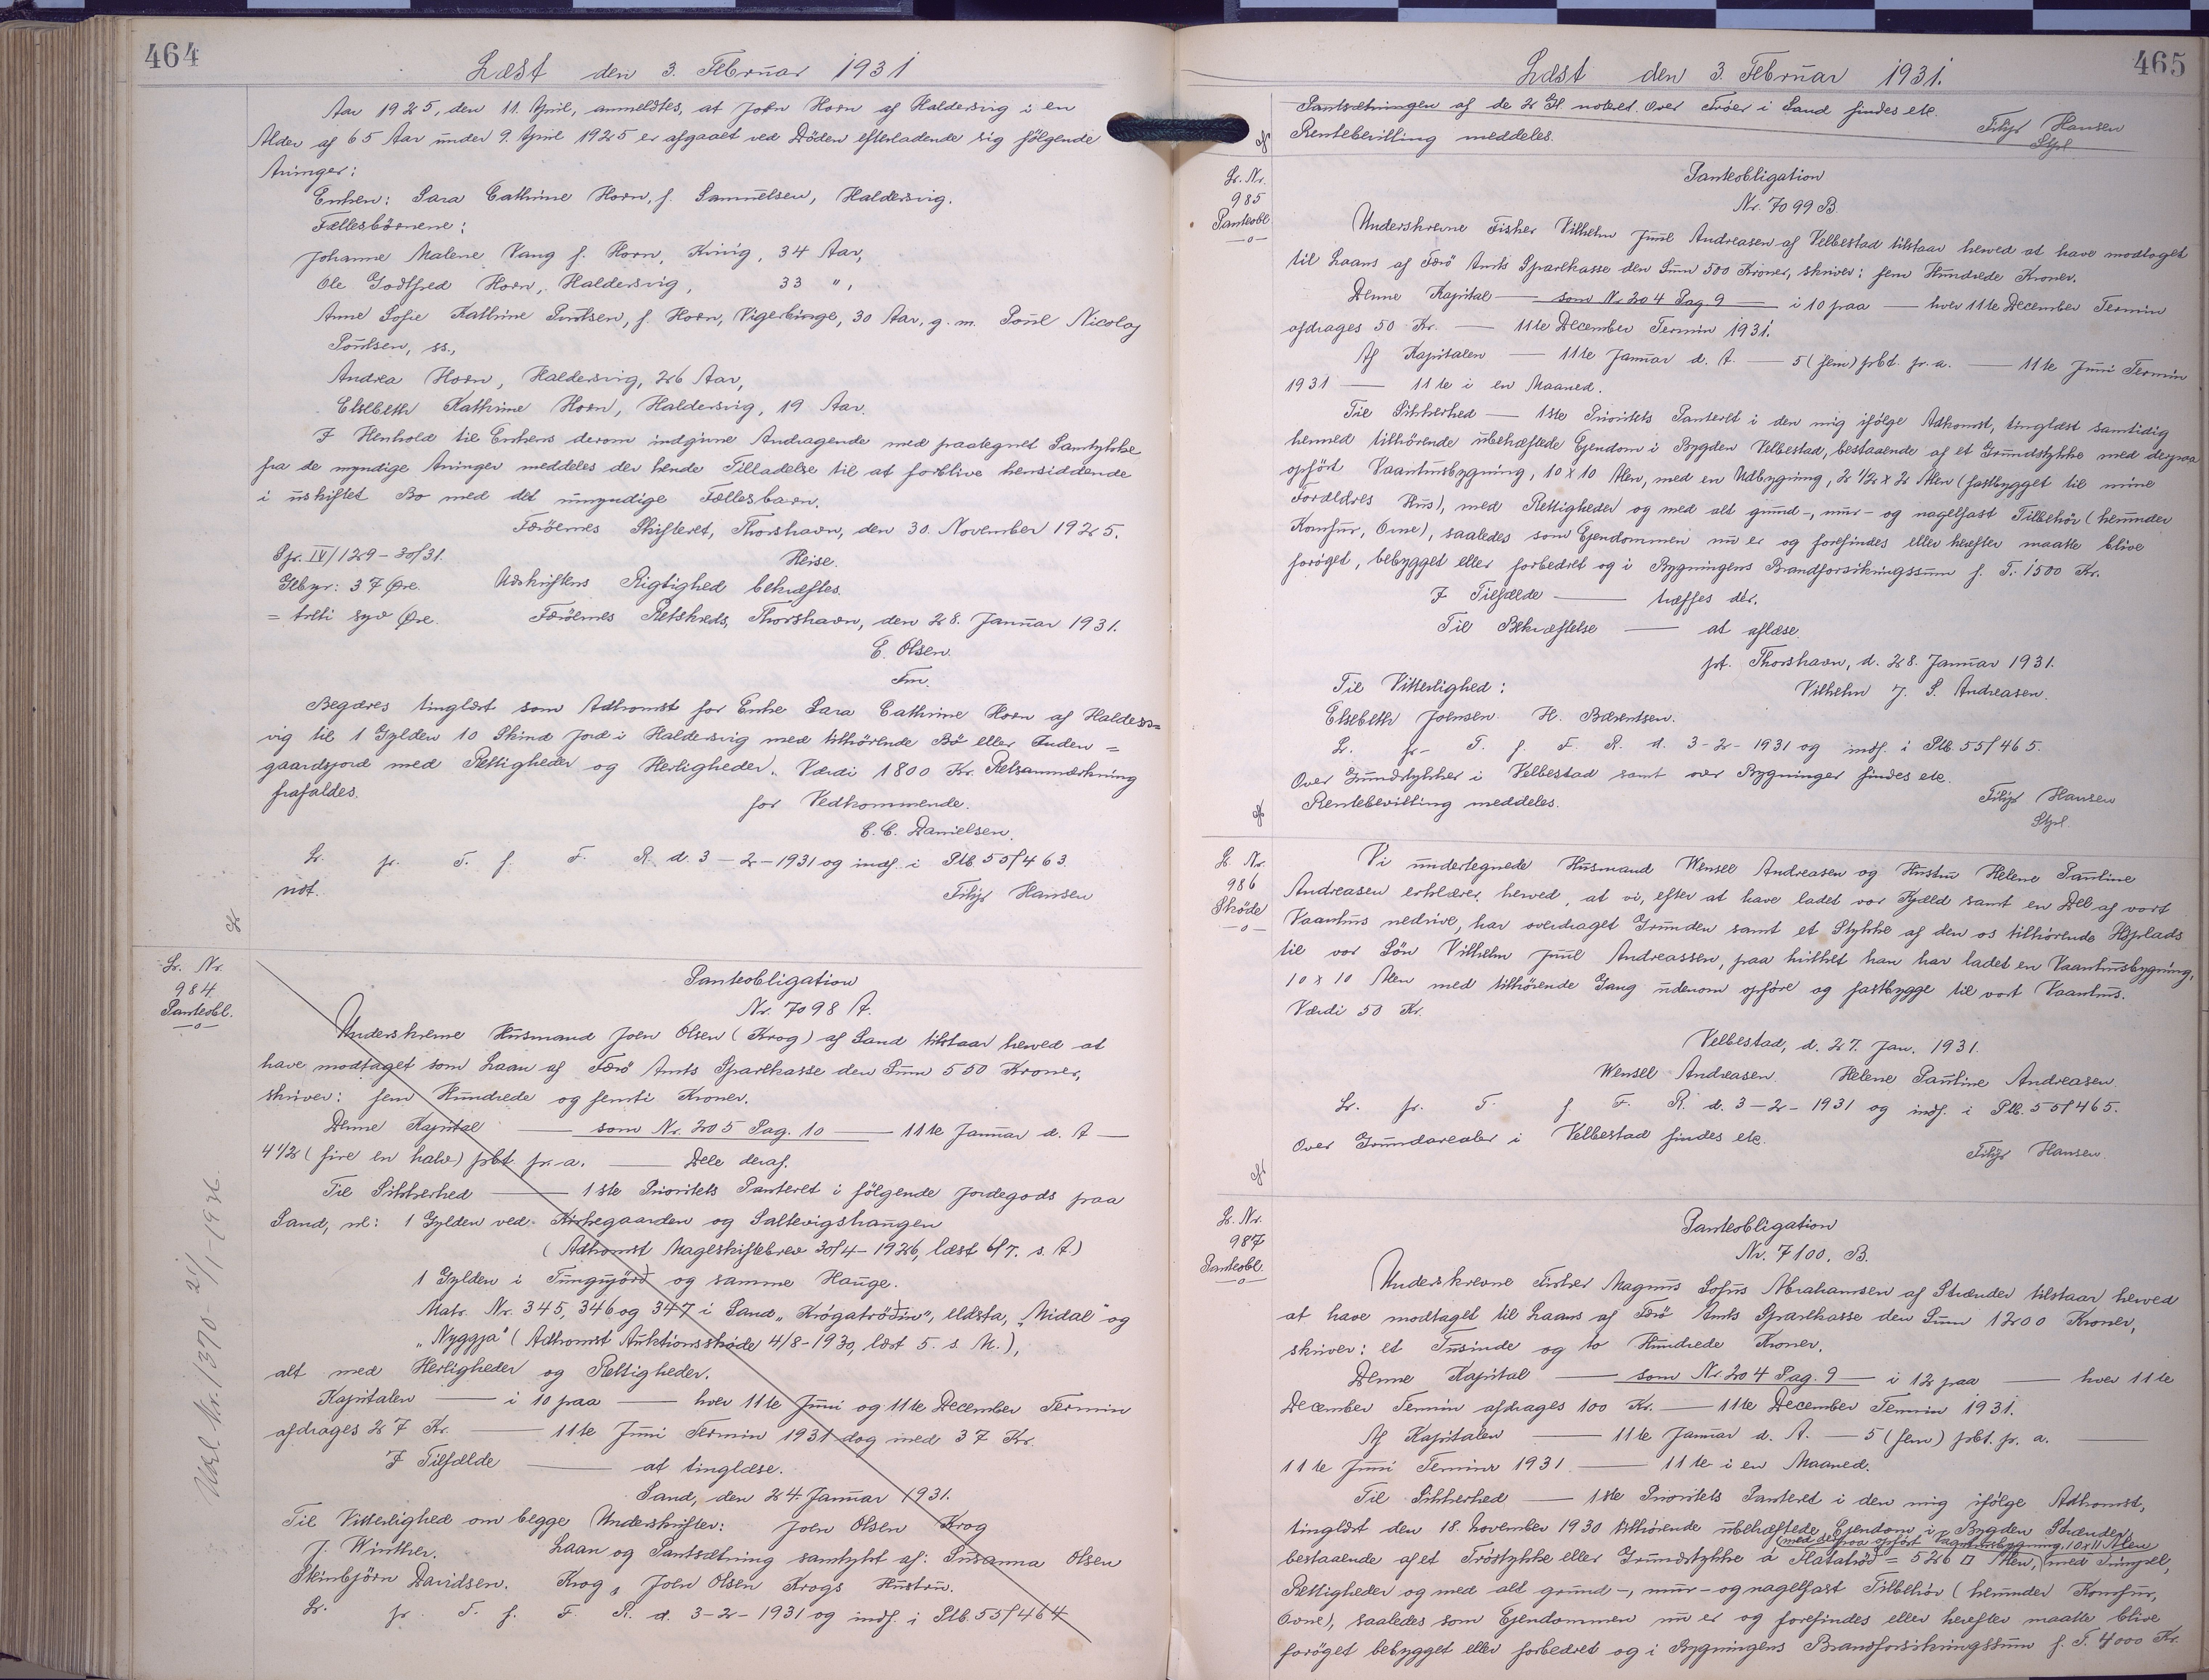 464
Læst den 3. Februar 1931
Aar 1925, den 11. April, anmeldtes, at John Horn af Haldersvig i en
Alder af 65 Aar under 9. April 1925 er afgaaet ved Döden efterladende sig fölgende
Arvinger:
Enken: Sara Cathrine Horn, f. Samuelsen, Haldersvig.
Fællesbörnene:
Johanne Malene Vang f. Horn, 34 Aar,
Ole Godtfred Horn, Haldersvig, 33 " ,
Anne Sofie Kathrine Poulsen, f. Horn, 30 Aar, g. m. Poul Nicolaj
Poulsen, ss.,
Andrea Horn, Haldersvig, 26 Aar,
Elsebeth Kathrine Horn, Haldersvig, 19 Aar.
I Henhold til Enkens derom indgivne Andragende med paategnet Samtykke
fra de myndige Arvinger meddeles der hende Tilladelse til at forblive hensiddende
i uskiftet Bo med det umyndige Fællesbarn.
Færöernes Skifteret, Thorshavn, den 30. November 1925.
Heise.
Pfr. IV/129-30/31.
Gebyr: 37 Øre.
= treti syv Øre.
Udskriftens Rigtighed bekræftes.
Færöernes Retskreds, Thorshavn, den 28. Januar 1931.
E. Olsen.
Fm.
Begæres tinglæst som Adkomst for Enke Sara Cathrine Horn af Halders=
vig til 1 Gylden 10 Skind Jord i Haldersvig med tilhörende Bö eller Inden=
gaardsjord med Rettigheder og Herligheder. Værdi 1800 Kr. Retsanmærkning
frafaldes.
for Vedkommende.
C. C. Danielsen.
L. fr. T. f. F. R. d. 3-2-1931 og indf. i Ptb. 55/463
not.
Filip Hansen
Lr. Nr.
984.
Panteobl.
—o—
Udsl Nr. 1370 - 21/1-1936
Panteobligation
Nr. 7098 A.
Underskrevne Husmand Joen Olsen (Krog) af Sand tilstaar herved at
have modtaget som Laan af Færö Amts Sparekasse den Sum 550 Kroner,
skriver: fem Hundrede og femti Kroner.
Denne Kapital — som Nr. 205 Pag. 10 — 11te Januar d. A —
4 1/2 (fire en halv) pCt pr. a. — Dele deraf.
Til Sikkerhed — 1ste Prioritets Panteret i fölgende Jordegods paa
Sand, nl: 1 Gylden ved Kirkegaarden og Saltevigshaugen
(Adkomst Mageskiftebrev 30/4-1926, læst 6/7. s. A.)
1 Gylden i Tungujörd og samme Hauge.
Matr. Nr. 345, 346 og 347 i Sand „Krógatröðin", eldsta, „Midal" og
„Nyggja" (Adkomst Auktionsskøde 4/8-1930, læst 5. s. M.),
alt med Herligheder og Rettigheder.
Kapitalen — i 10 paa — hver 11te Juni og 11te December Termin
afdrages 27 Kr. — 11te Juni Termin 1931 dog med 37 Kr.
I Tilfælde — at tinglæse.
Sand, den 24. Januar 1931.
Til Vitterlighed om begge Underskrifter: Joen Olsen Krog
J. Winther. Laan og Pantsætning samtykt af: Susanna Olsen
Skinbjörn Davidsen. Krog, Joen Olsen Krogs Hustru.
Lr. fr. T. f. F. R. d. 3-2-1931 og indf. i Ptb. 55/464
465
Læst den 3. Februar 1931.
Pantsætningen af de 2 Gl noteret. Over Tröer i Sand findes etc.
Rentebevilling meddeles.
Filip Hansen
Stpl
Lr. Nr.
985
Panteobl
—o—
Panteobligation
Nr. 7099 B.
Underskrevne Fisker Vilhelm Juul Andreasen af Velbestad tilstaar herved at have modtaget
til Laans af Færö Amts Sparekasse den Sum 500 Kroner, skriver: fem Hundrede Kroner.
Denne Kapital — som Nr. 204 Pag 9 — i 10 paa — hver 11te December Termin
afdrages 50 Kr. — 11te December Termin 1931.
Af Kapitalen — 11te Januar d. A. — 5 (fem) pCt. pr. a. — 11te Juni Termin
1931 — 11te i en Maaned.
Til Sikkerhed — 1ste Prioritets Panteret i den mig ifölge Adkomst, tinglæst samtidig
hermed tilhörende ubehæftede Ejendom i Bygden Velbestad, bestaaende af et Grundstykke med derpaa
opfört Vaaningsbygning, 10 x 10 Alen, med en Udbygning, 2 1/2 x 2 Alen (fastbygget til mine
Forældres Hus), med Rettigheder og med alt grund-, mur- og nagelfast Tilbehör (herunder
Komfur, Ovne), saaledes som Ejendommen nu er og forefindes eller herefter maatte blive
foröget, bebygget eller forbedret og i Bygningens Brandforsikringssum f. T. 1500 Kr.
I Tilfælde — træffes dér.
Til Bekræftelse — at aflæse.
pt. Thorshavn, d. 28. Januar 1931.
Til Vitterlighed: Vilhelm J. S. Andreasen.
Elsebeth Joensen. H. Bærentsen.
Lr. fr. T. f. F. R. d. 3-2-1931 og indf. i Ptb. 55/465.
Over Grundstykker i Velbestad samt over Bygninger findes etc.
Rentebevilling meddeles.
Filip Hansen
Stpl.
Lr. Nr.
986
Sköde
—o—
Vi undertegnede Husmand Wensel Andreasen og Hustru Helene Pauline
Andreasen erklærer herved, at vi, efter at have ladet vor Kjæld samt en Del af vort
Vaanhus nedrive, har overdraget Grunden samt et Stykke af den os tilhörende Husplads
til vor Sön Vilhelm Juul Andreassen, paa hvilket han har ladet en Vaanhusbygning,
10 x 10 Alen med tilhörende Gang udenom opföre og fastbygge til vort Vaanhus.
Værdi 50 Kr.
Velbestad, d. 27. Jan. 1931.
Wensel Andreasen. Helene Pauline Andreasen.
Lr. fr. T. f. F. R. d. 3-2-1931 og indf. i Ptb. 55/465.
Over Grundarealer i Velbestad findes etc.
Filip Hansen.
Lr. Nr.
987
Panteobl.
—o—
Panteobligation
Nr. 7100. B.
Underskrevne Fisker Magnus Sofus Abrahamsen af Strænder tilstaar herved
at have modtaget til Laans af Færö Amts Sparekasse den Sum 1200 Kroner,
skriver: et Tusinde og to Hundrede Kroner.
Denne Kapital — som Nr. 204 Pag. 9 — i 12 paa — hver 11te
December Termin afdrages 100 Kr. — 11te December Termin 1931.
Af Kapitalen — 11te Januar d. A. — 5 (fem) pCt. pr. a. —
11te Juni Termin 1931 — 11te i en Maaned.
Til Sikkerhed — 1ste Prioritets Panteret i den mig ifölge Adkomst,
tinglæst den 18. November 1930 tilhörende ubehæftede Ejendom i Bygden Strænder,
(med derpaa opfört Vaaningsbygning, 10 x 11 Alen
bestaaende af et Tröstykke eller Grundstykke á Flátatröd = 526 □ Alen, med
Rettigheder og med alt grund-, mur- og nagelfast Tilbehör (herunder Komfur,
Ovne), saaledes som Ejendommen nu er og forefindes eller herefter maatte blive
foröget bebygget eller forbedret og i Bygningens Brandforsikringssum f. T. 4000 Kr.